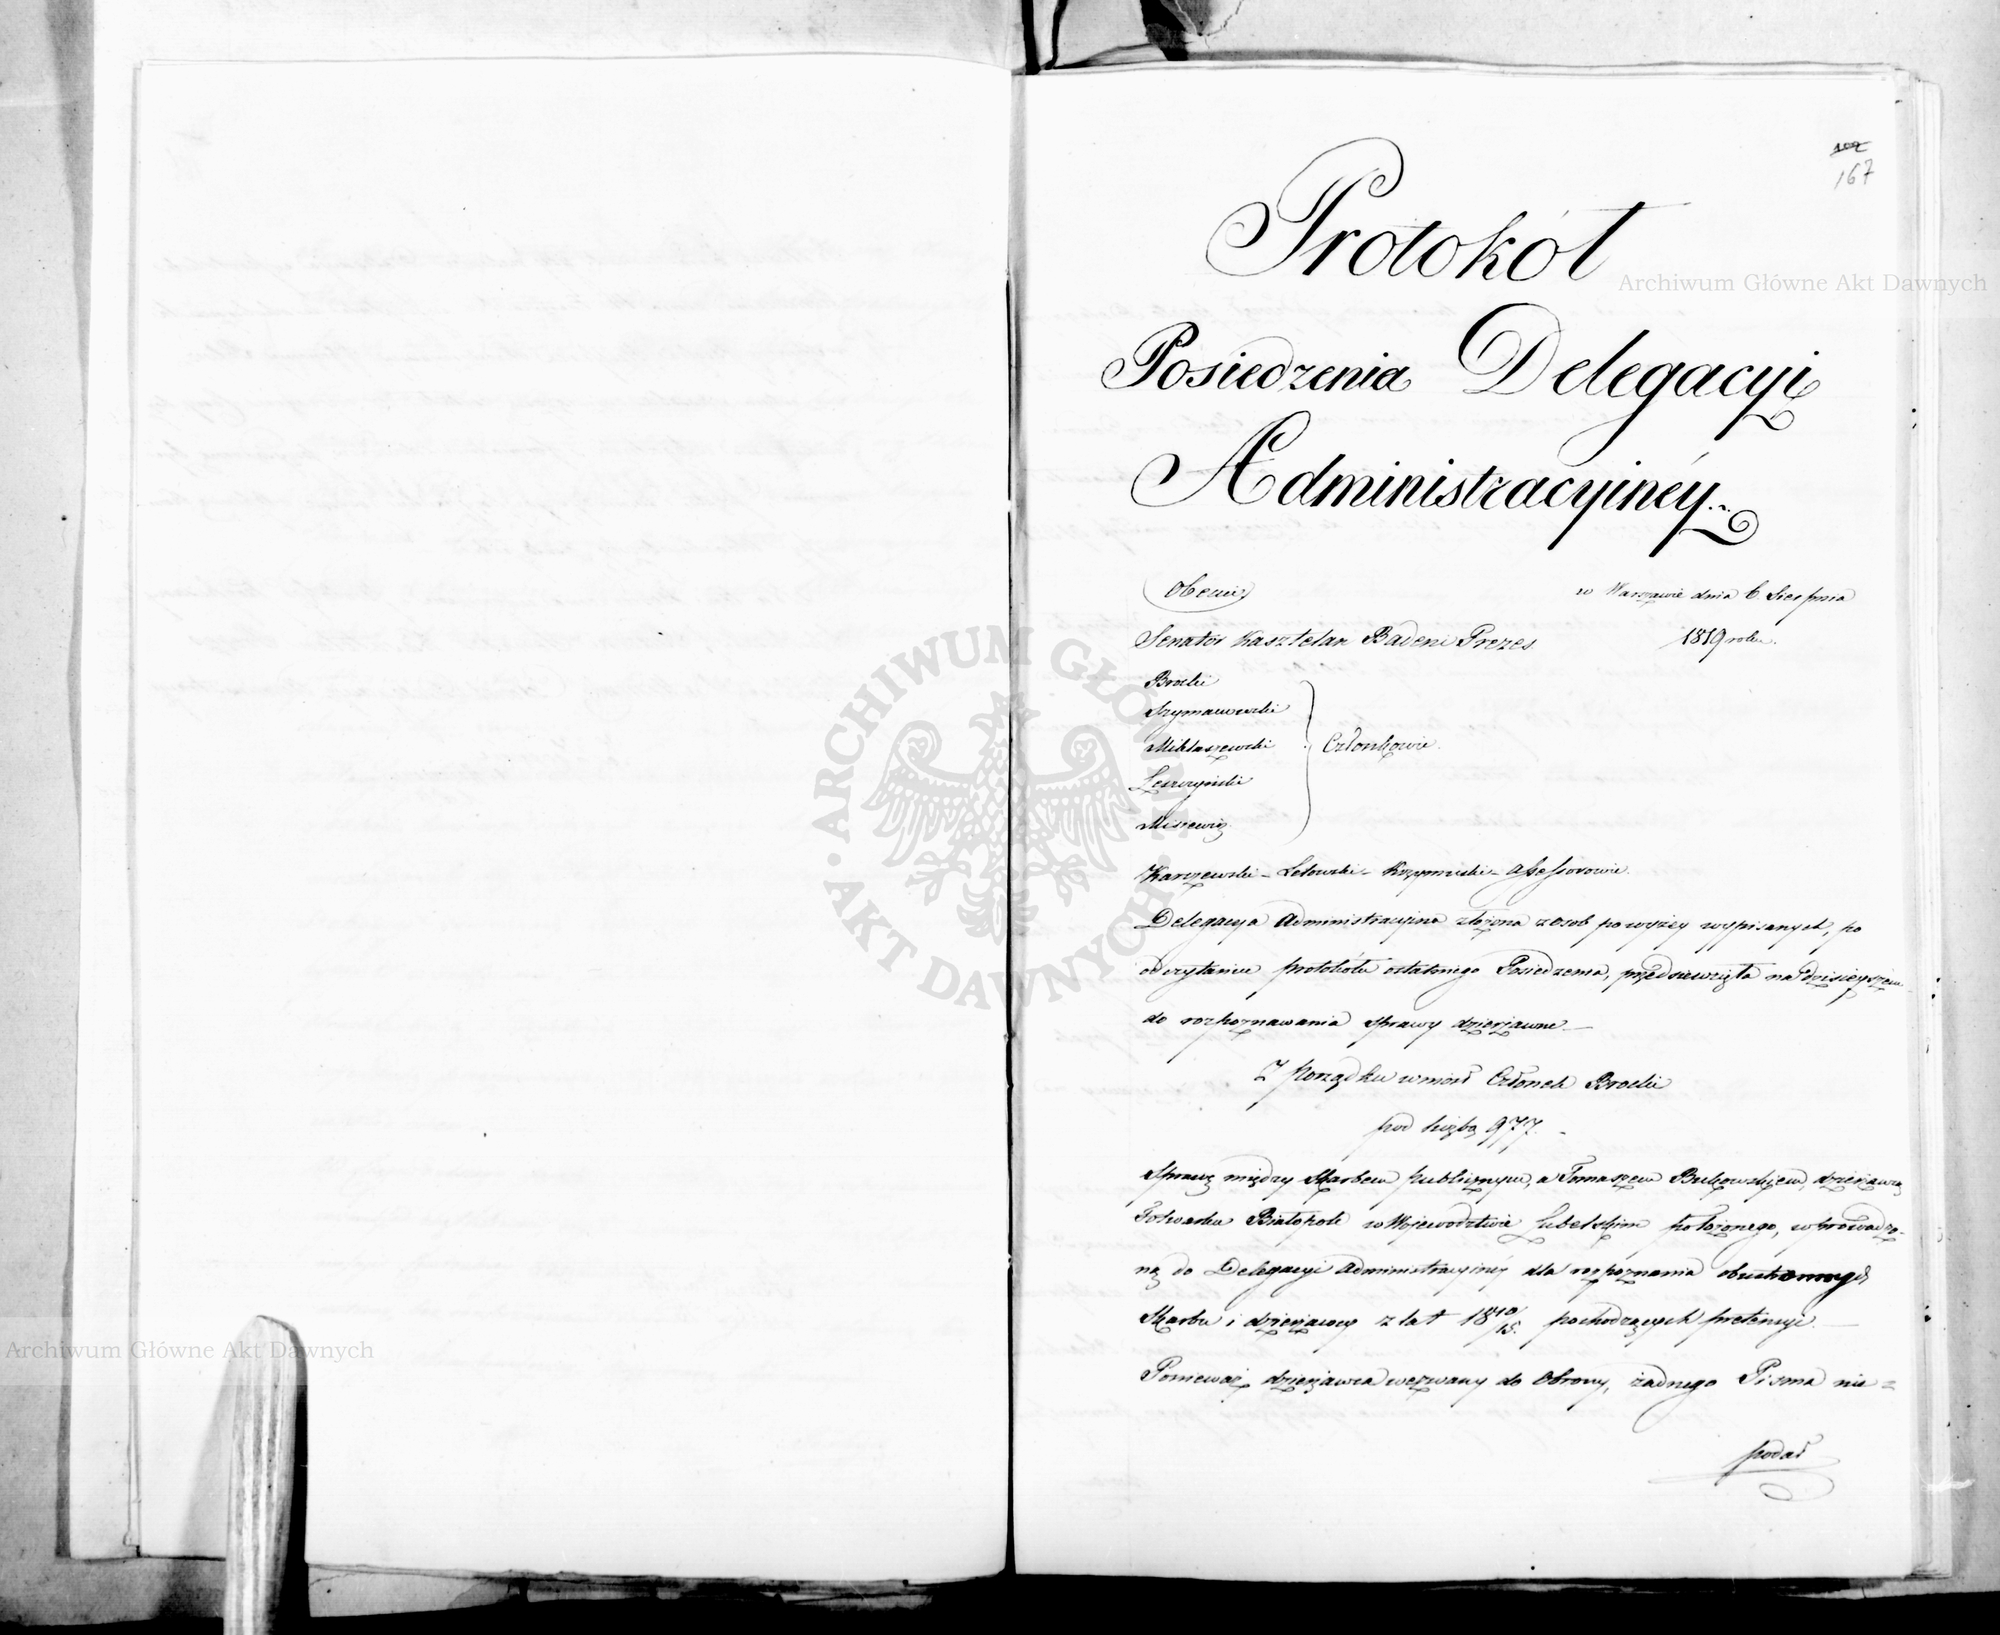 167
Protokół
Posiedzenia Delegacyi
Administracyinéy
Obecni
w Warszawie dnia 6. Sierpnia
Senator Kasztelan Badeni Prezes
1819 roku.
Brocki
Szymanowski
Miklaszewski
Członkowie.
Leszczyński
Misiewicz
Karczewski - Letowski - Koźmiński - Assessorowie.
Delegacya Administracyina złożona z osob powyżey wypisanych, po
odczytaniu protokołu ostatniego Posiedzenia, przedsiewzięła na dzisieyszem
do rozpoznawania sprawy dzierżawne
Z porządku wniosł Członek Brocki
pod liczbą 977.
Sprawę między Skarbem publicznym, a Tomaszem Bukowskiem, dzierżawcą
Folwarku Białopole w Wojewodztwie Lubelskim położonego, wprowadzo-
ną do Delegacyi Administracyiney dla rozpoznania obustronnych
Skarbu i dzierżawcy z lat 1810/15. pochodzących pretensyi.
Ponieważ dzierżawca wezwany do Obrony, żadnego Pisma nie
podał
Archiwum Główne Akt Dawnych
Archiwum Główne Akt Dawnych
ARCHIWUM GŁÓWNE AKT DAWNYCH